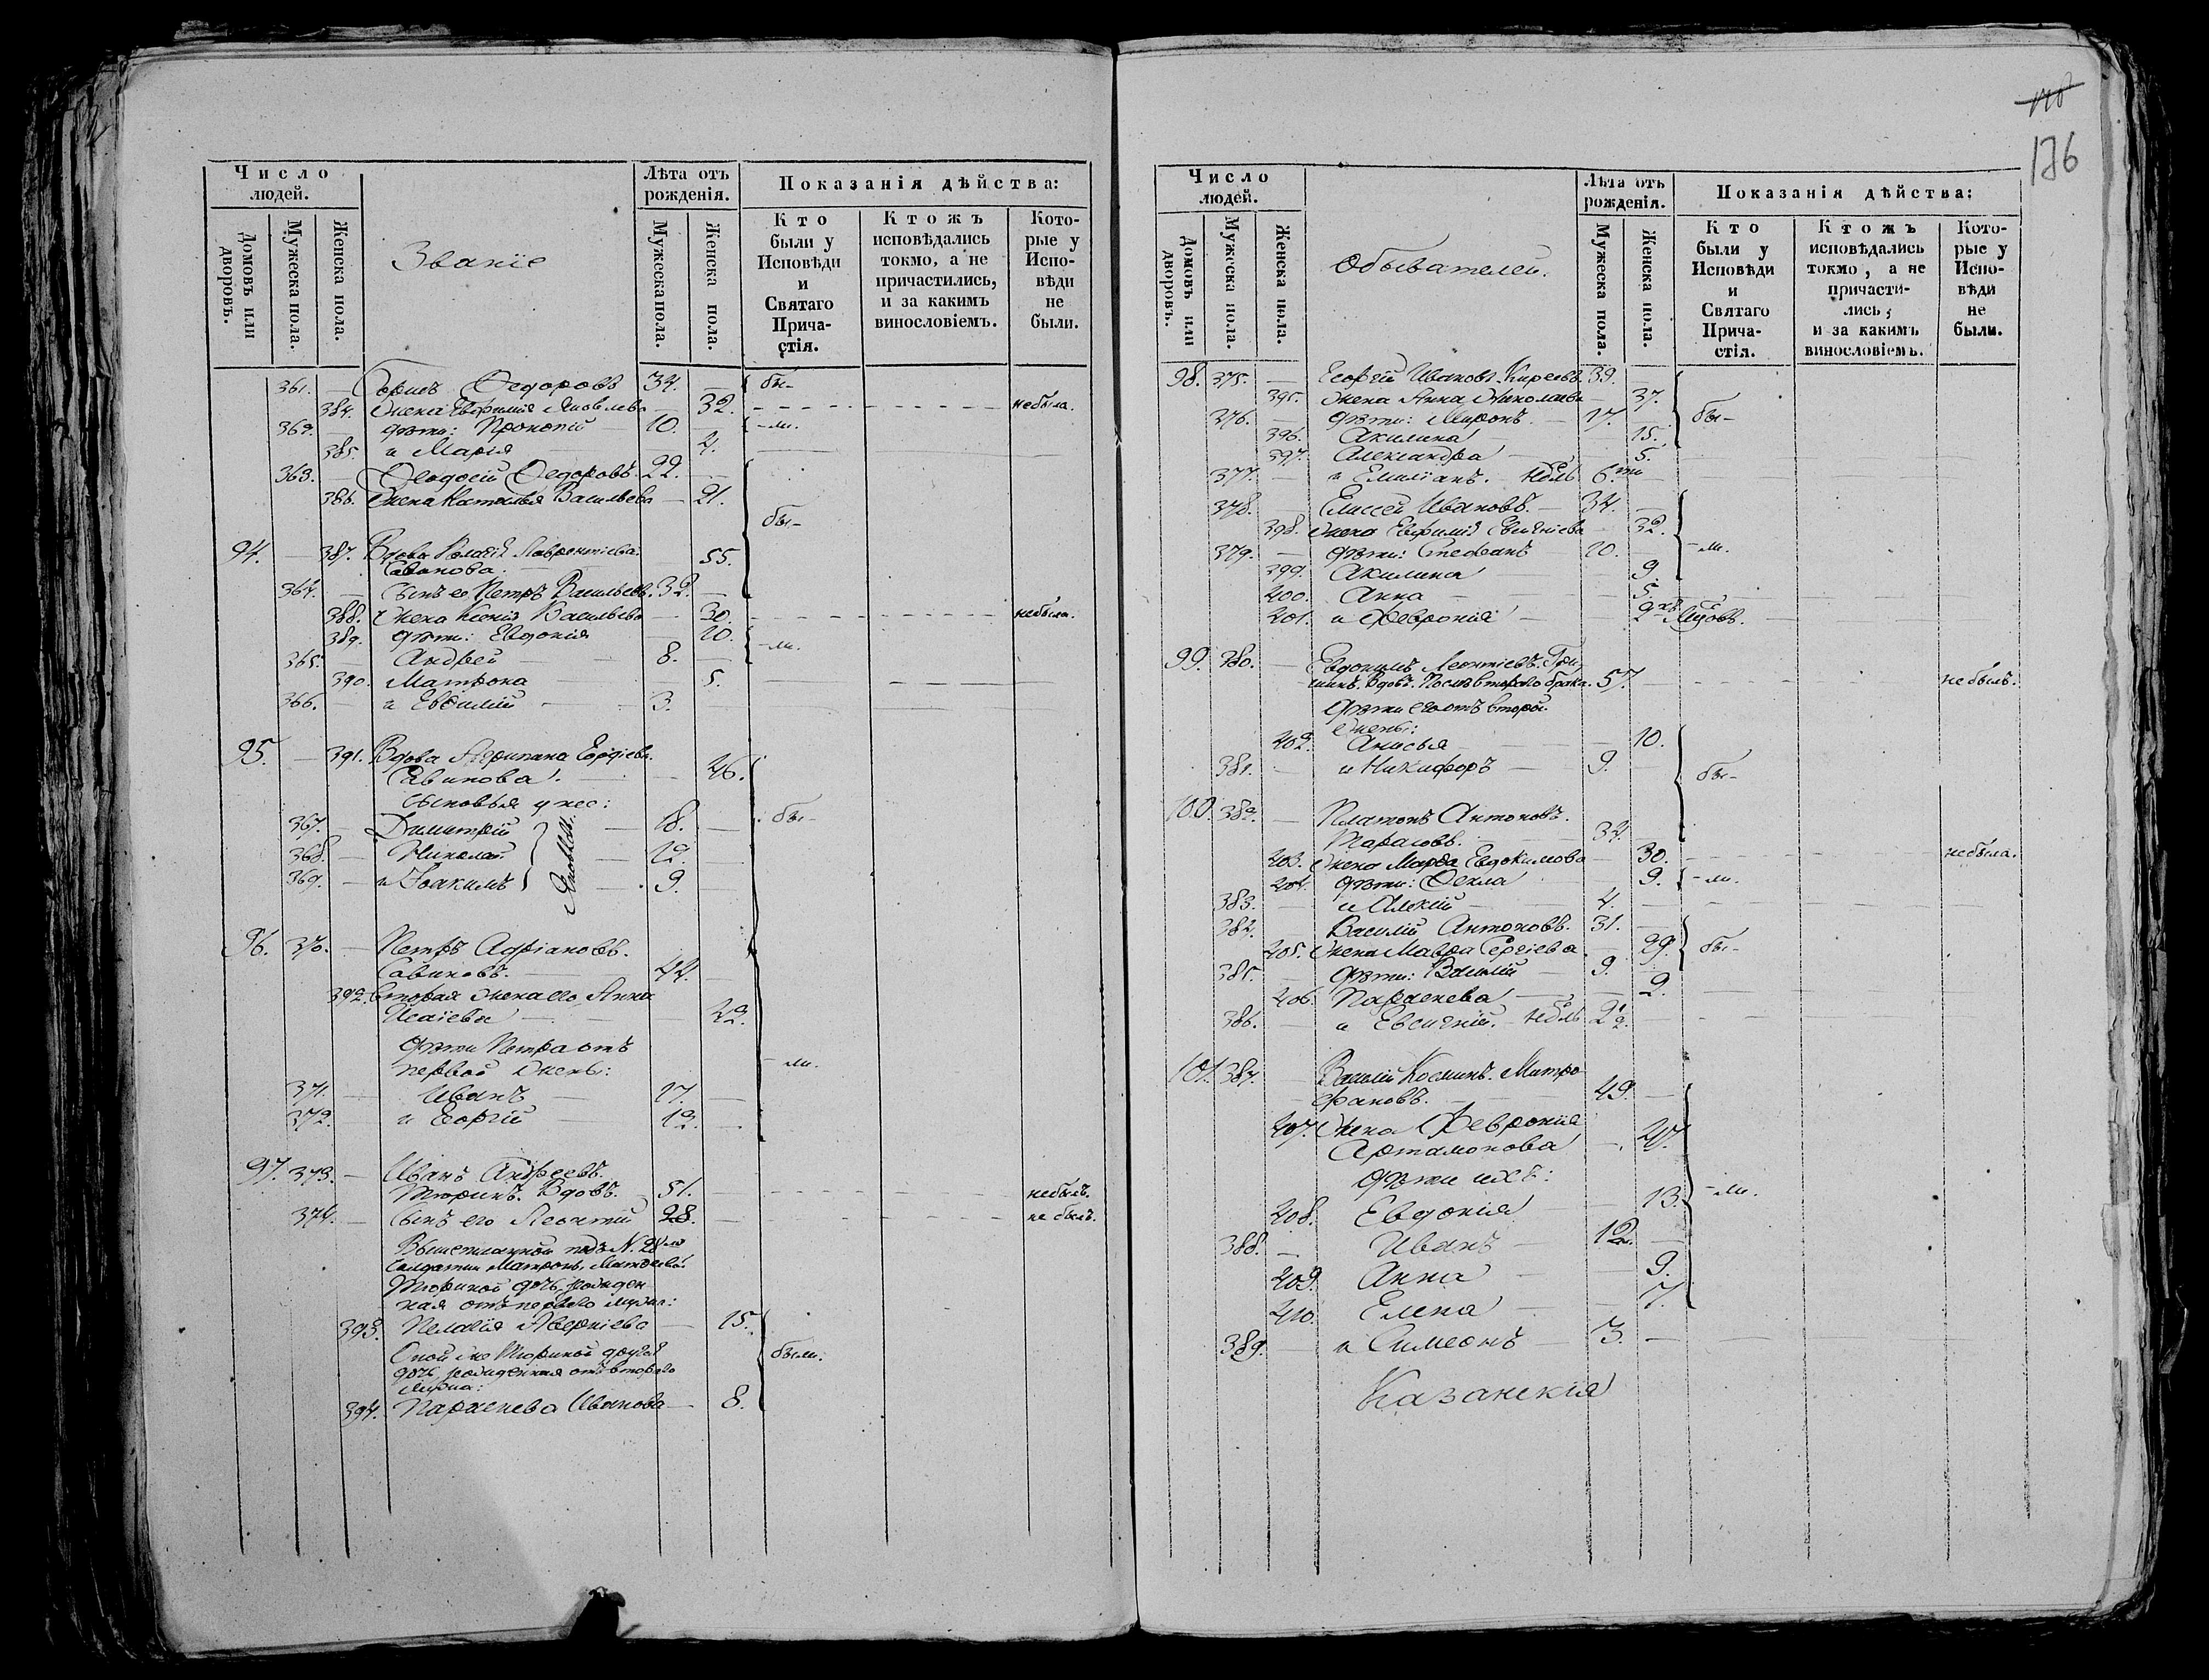 Число людей.
Домовъ или дворовъ.
Мужеска пола.
Женска пола.
Званіе
Лѣта отъ рожденія.
Мужеска пола.
Женска пола.
Показанія дѣйства:
Кто были у Исповѣди и Святаго Прича-стія.
Ктожъ исповѣдались токмо, а не причастились, и за какимъ винословіемъ.
Кото-рые у Испо-вѣди не были.
361. — Ѳедоровъ 34. — бы-
384. Жена Евфимія Яковлева 32. небыла.
362. дѣти: Прокопій — 10. — -ли.
385. и Марія 4.
363. — Ѳеодосій Ѳедоровъ. 22. —
386. Жена Наталья Васильева — 21.
бы-
94. — 387. Вдова Пелагія Лаврентіева
Савинова. 55.
364. — Сынъ ее Петръ Васильевъ. 32. —
388. Жена Ксенія Васильева — 30. небыла.
389. дѣти: Евдокія — 10. -ли.
365. — Андрей — 8. —
390. Матрона 5.
366. — и Евѳимій — 3.
95. — 391. Вдова
Савинова. — 46.
сыновья у нее:
367. — Димитрій — 18. — бы-
368. — Николай — 12. —
369. — и Іоакимъ — 9.
Яковлев.
96. 370. — Петръ Адріановъ.
Савиновъ. 44. —
392. Вторая жена его Анна
Исаіева — 42.
дѣти Петра отъ
первой жены: -ли.
371. — Иванъ — 17. —
372. — и Георгій — 12. —
97. 373. — Иванъ Андреевъ.
Тюринъ. Вдовъ. 51. — небылъ.
374. — Сынъ его Леонтій 28. — не былъ.
Вышеписанной подъ N. 28
Солдатки Матроны
Тюриной дочь, рожден
ная отъ перваго мужа:
393. Пелагія Аверкіева — 15.
Оной же Тюриной другая были.
дочь, рожденная отъ втораго
мужа:
394. Параскева Иванова — 8.
176
Число людей.
Домовъ или дворовъ.
Мужеска пола.
Женска пола.
Обывателей.
Лѣта отъ рожденія.
Мужеска пола.
Женска пола.
Показанія дѣйства:
Кто были у Исповѣди и Святаго Прича-стія.
Ктожъ исповѣдались токмо, а не причасти-лись, и за какимъ винословіемъ.
Кото-рые у Испо-вѣди не были.
98. 375. — Георгій Ивановъ Киреевъ. 39. —
395. Жена Анна Николаева — 37.
376. дѣти: Миронъ. — 17. бы-
396. Акилина — 15.
397. Александра — 5.
377. — и Емиліанъ. 6.
378. Елисей Ивановъ. — 34. —
398. Жена Евфимія Евсигніева — 32.
379. — дѣти: Стефанъ — 10. — -ли.
399. Акилина — 9.
400. Анна — 5.
401. и Февронія — 2
99. 380. — Евдокимъ Леонтіевъ. Гри
шинъ. Вдовъ. Послѣ втораго брака. 57. — не былъ.
дѣти его отъ второй
жены:
402. Анисья — 10.
381. — и Никифоръ — 9. — бы-
100. 382. — Платонъ Антоновъ.
Тарасовъ. — 34. —
403. Жена Марѳа Евдокимова — 30. небыла.
404. дѣти: Ѳекла — 9. -ли.
383. — и Алексій — 4. —
384. Василій Антоновъ. 31. —
405. Жена Мавра Сергіева — 29. бы-
385. — дѣти: Василій — 9. —
406. Параскева — 2.
386. — и Евсигній.
101. 387. — Василій Косминъ. Митро
фановъ. — 49. —
407. Жена Феврония
Артамонова — 47.
дѣти ихъ:
408. Евдокія — 13. -ли.
388. — Иванъ — 12. —
409. Анна — 9.
410. Елена — 7.
389. и Симеонъ — 3. —
Казанскія